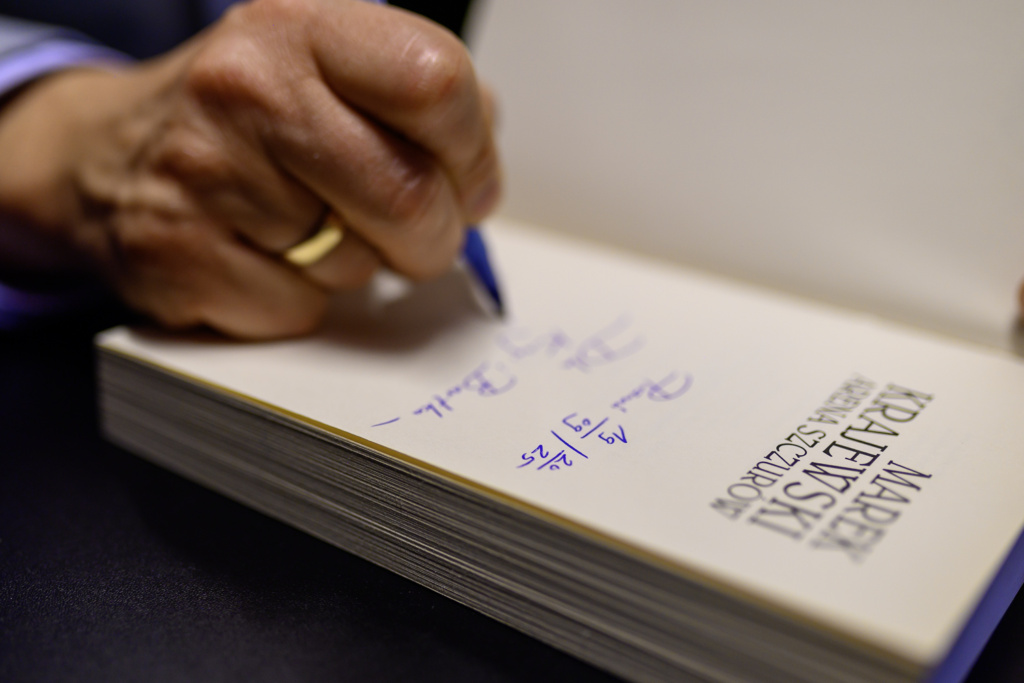 MAREK
KRAJEWSKI
ARENA SZCZURÓW
19 20
09 25
Pani